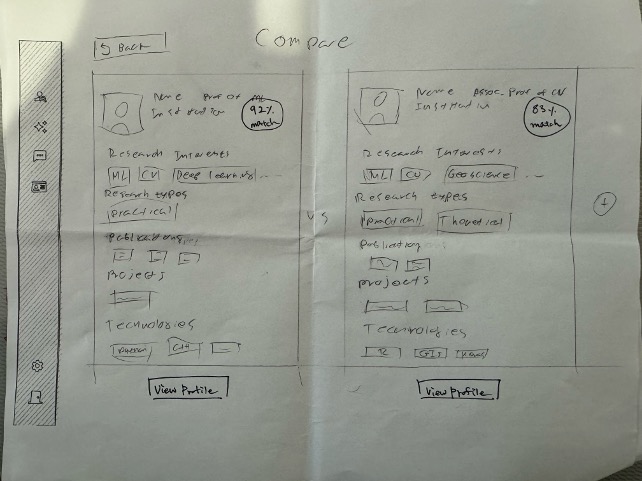 Back
Compare
Name Prof of ML
Institution
92% match
Research Interests
ML CV Deep Learning ...
Research types
practical
Publications
Projects
Technologies
Python C++
View Profile
VS
Name Assoc. Prof of CV
Institution
83% match
Research Interests
ML CV Geoscience ...
Research types
practical Theoretical
Publications
projects
Technologies
R GIS
View Profile
+